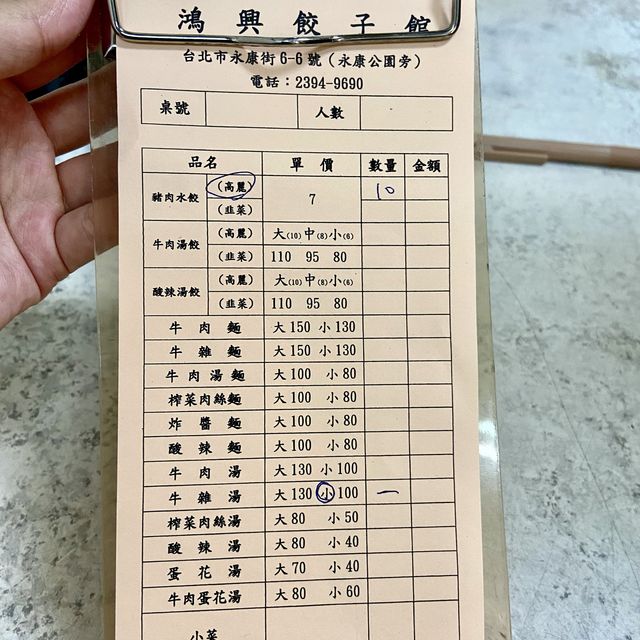 鴻興餃子館
台北市永康街6-6號（永康公園旁）
電話：2394-9690
桌號 人數
品名 單價 數量 金額
豬肉水餃 （高麗） 7 10
（韭菜）
牛肉湯餃 （高麗） 大(10)中(8)小(6)
（韭菜） 110 95 80
酸辣湯餃 （高麗） 大(10)中(8)小(6)
（韭菜） 110 95 80
牛肉麵 大150 小130
牛雜麵 大150 小130
牛肉湯麵 大100 小80
榨菜肉絲麵 大100 小80
炸醬麵 大100 小80
酸辣麵 大100 小80
牛肉湯 大130 小100
牛雜湯 大130 小100 一
榨菜肉絲湯 大80 小50
酸辣湯 大80 小40
蛋花湯 大70 小40
牛肉蛋花湯 大80 小60
小菜